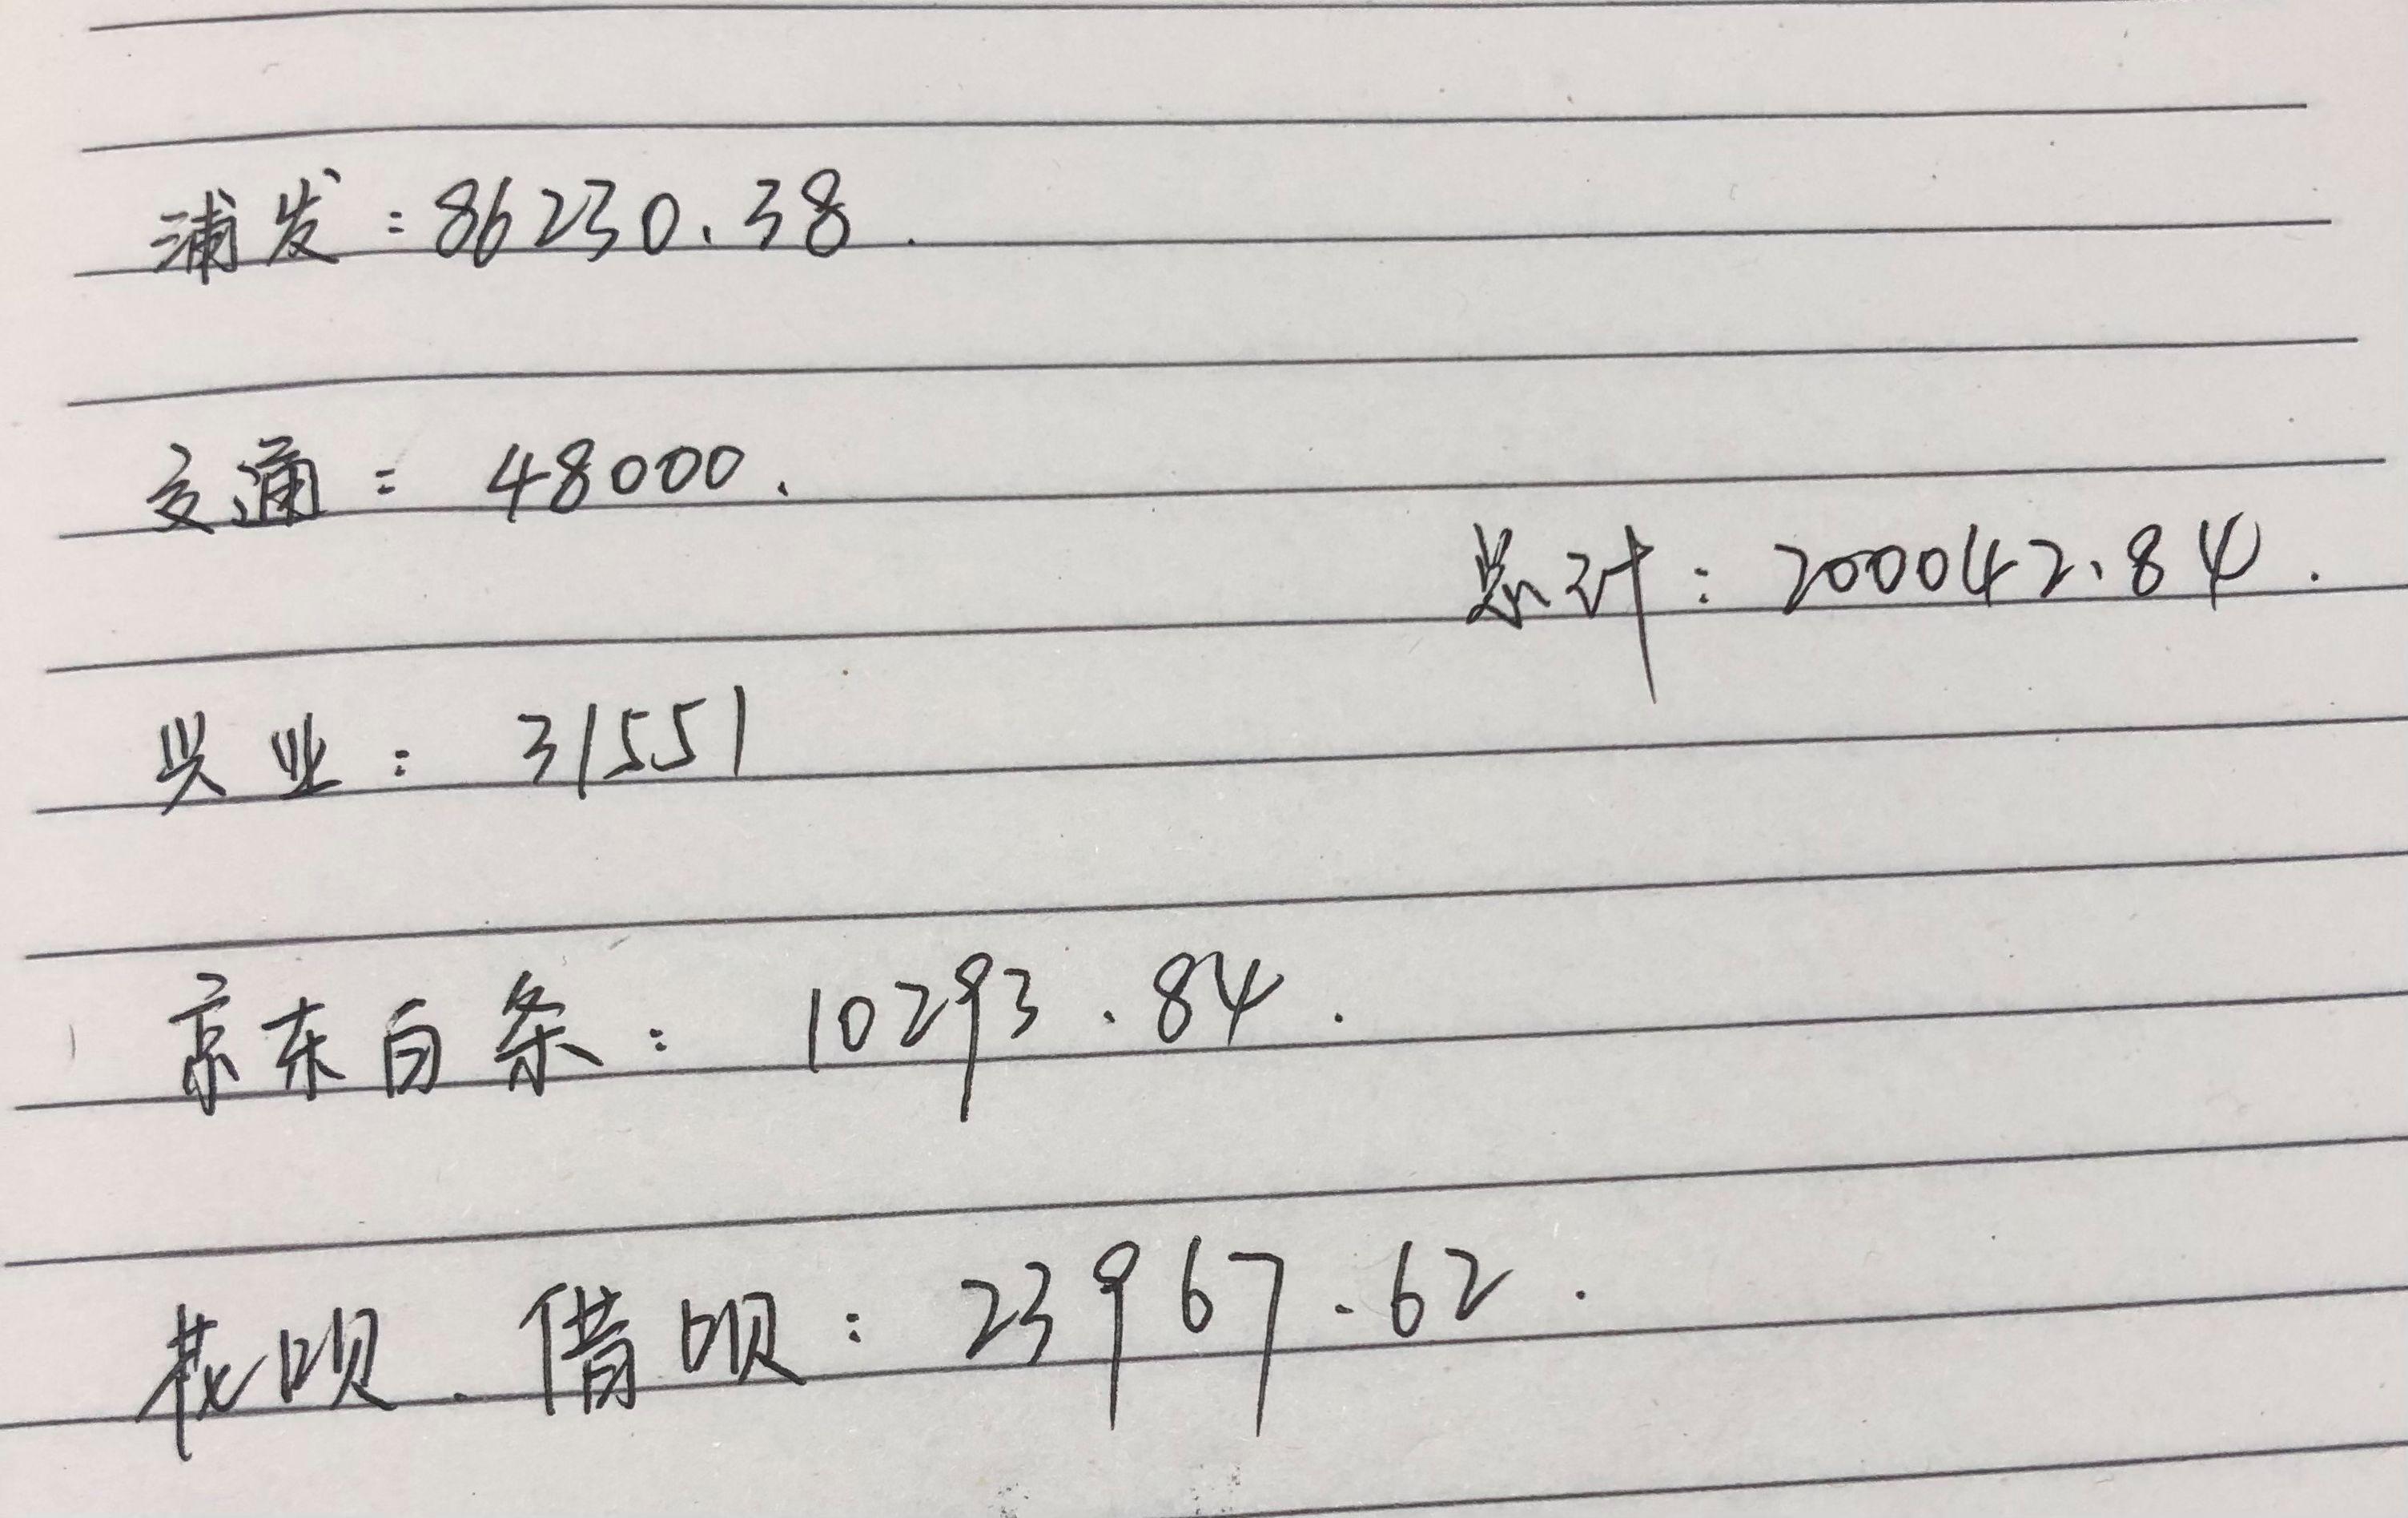 浦发：86230.38.
交通：48000.
总计：200042.84.
兴业：31551
京东白条：10293.84.
花呗.借呗：23967.62.